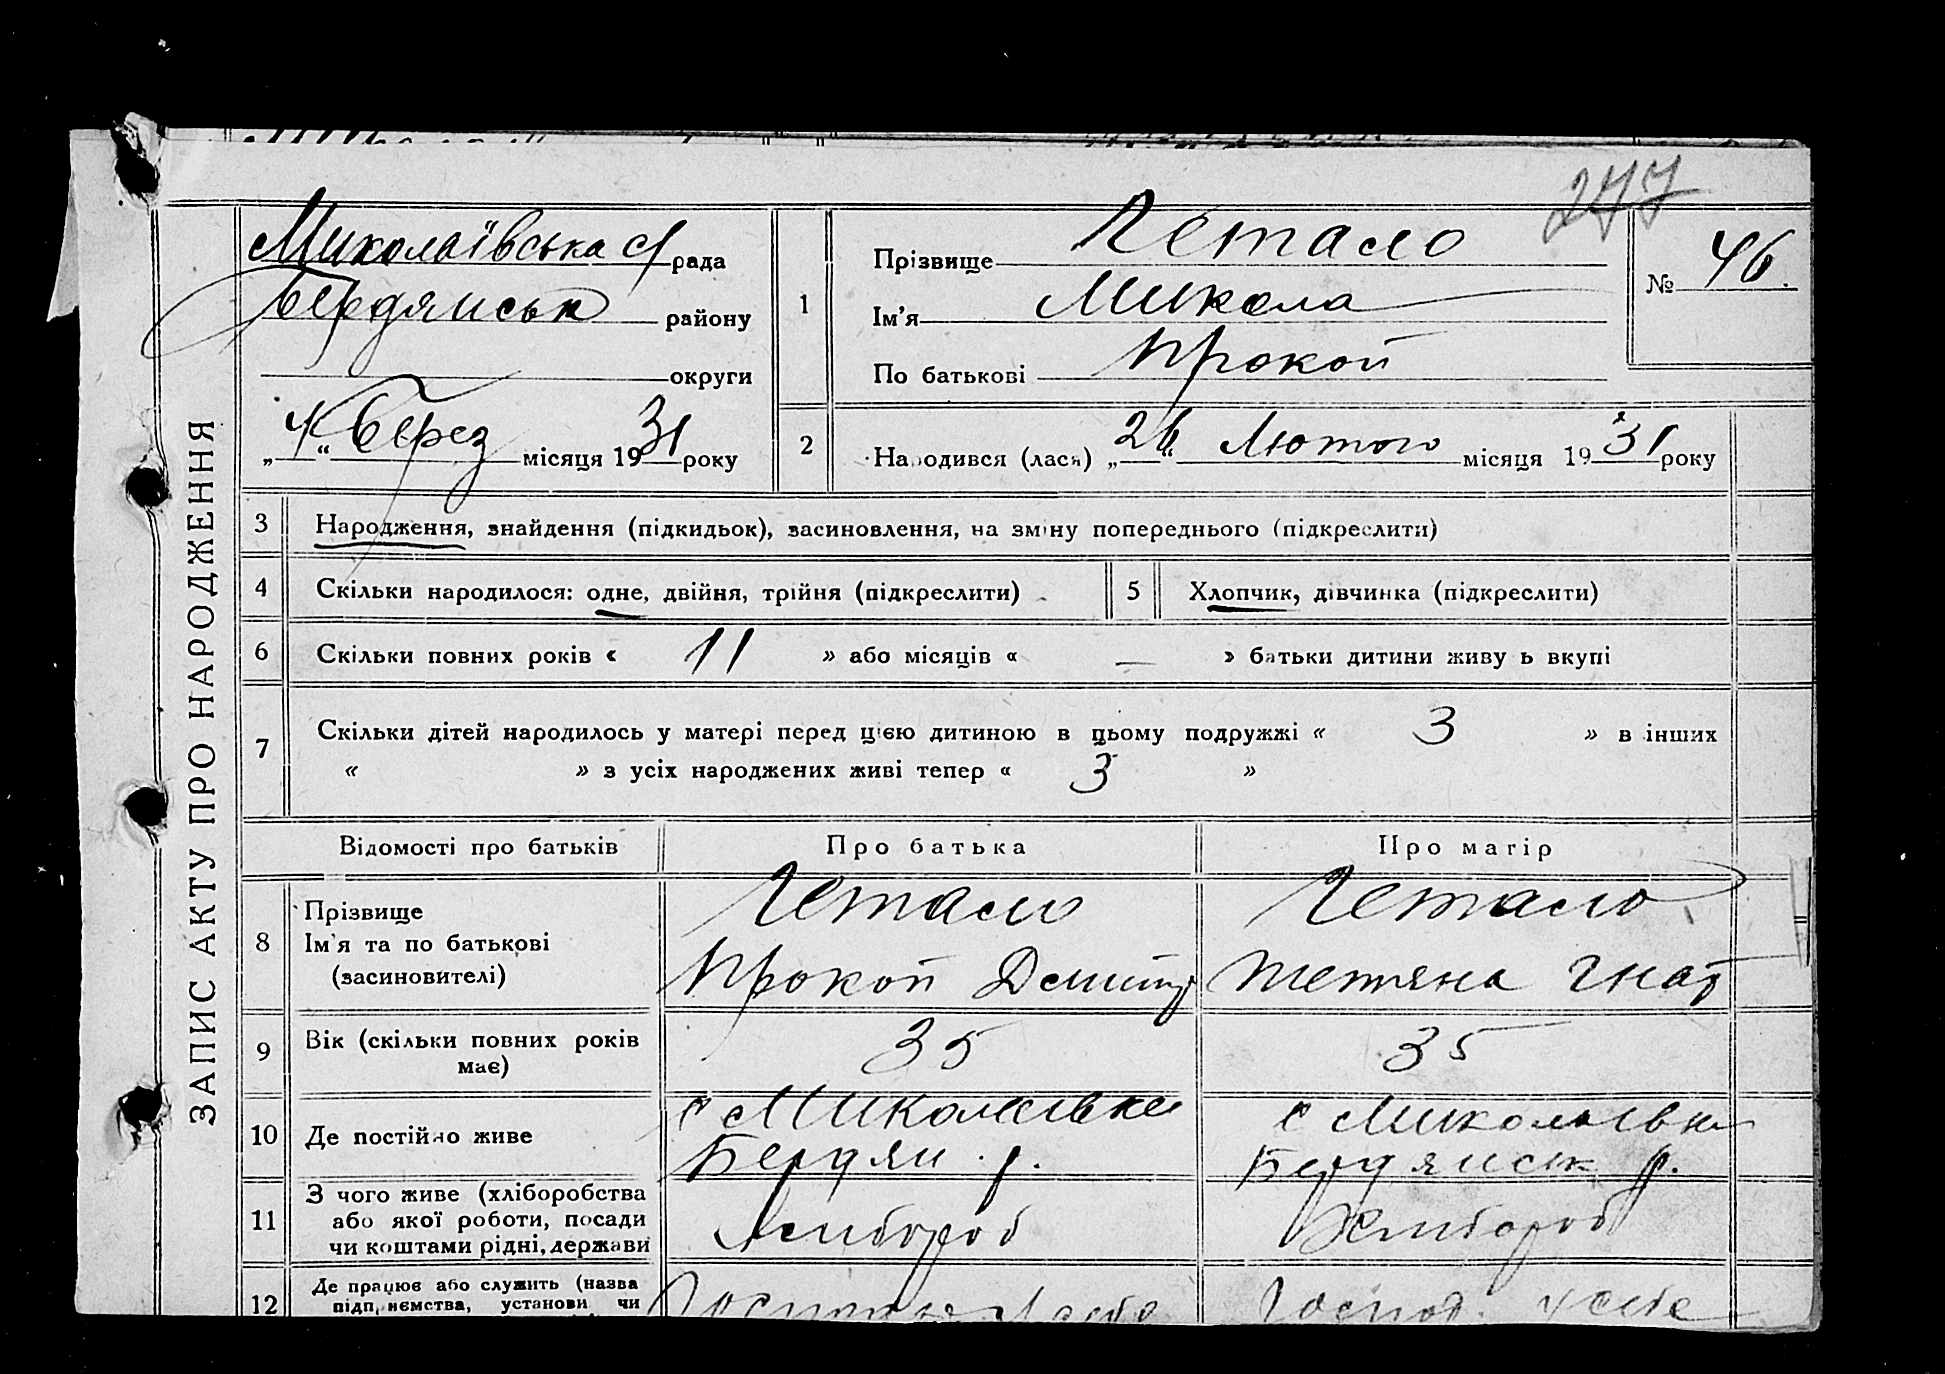 277
Миколаївська с/рада
Бердянськ району
округи
„4“ Берез місяця 1931 року
1
Прізвище Гетало
Ім'я Микола
По батькові Прокоп
№ 46.
2
Народився (лася) „26“ Лютого місяця 1931 року
ЗАПИС АКТУ ПРО НАРОДЖЕННЯ
3 Народження, знайдення (підкидьок), засиновлення, на зміну попереднього (підкреслити)
4 Скільки народилося: одне, двійня, трійня (підкреслити)
5 Хлопчик, дівчинка (підкреслити)
6 Скільки повних років « 11 » або місяців « — » батьки дитини живу ь вкупі
7 Скільки дітей народилось у матері перед цією дитиною в цьому подружжі « 3 » в інших
« » з усіх народжених живі тепер « 3 »
Відомості про батьків
Про батька
Про матір
8 Прізвище
Ім'я та по батькові
(засиновителі)
Гетало
Прокоп Дмитр
Гетало
Тетяна Гнат
9 Вік (скільки повних років
має)
35
35
10 Де постійно живе
с Миколаївка
Бердян. р.
с Миколаївка
Бердянськ р.
11 З чого живе (хліборобства
або якої роботи, посади
чи коштами рідні, держави
Хлібороб
Хлібороб
12 Де працює або служить (назва
підприємства, установи чи
Господ. у себе